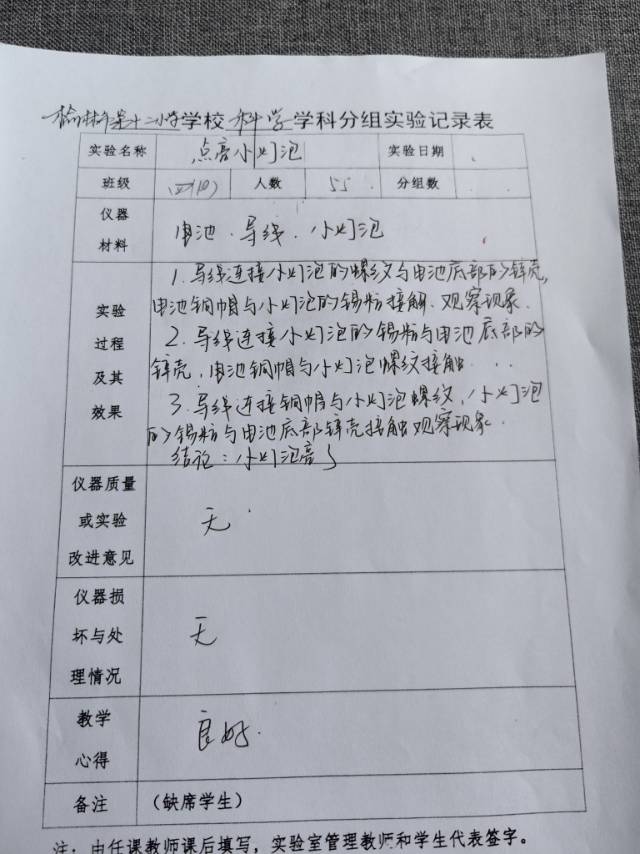 榆林市第十二小学学校 科学 学科分组实验记录表
实验名称 点亮小灯泡 实验日期
班级 四(10) 人数 55 分组数
仪器材料 电池、导线、小灯泡
实验过程及其效果
1. 导线连接小灯泡的螺纹与电池底部的锌壳,
电池铜帽与小灯泡的锡粒接触、观察现象.
2. 导线连接小灯泡的锡粒与电池底部的
锌壳,电池铜帽与小灯泡螺纹接触
3. 导线连接铜帽与小灯泡螺纹,小灯泡
的锡粒与电池底部锌壳接触观察现象.
结论:小灯泡亮了
仪器质量或实验改进意见 无
仪器损坏与处理情况 无
教学心得 良好.
备注 (缺席学生)
注:由任课教师课后填写,实验室管理教师和学生代表签字。